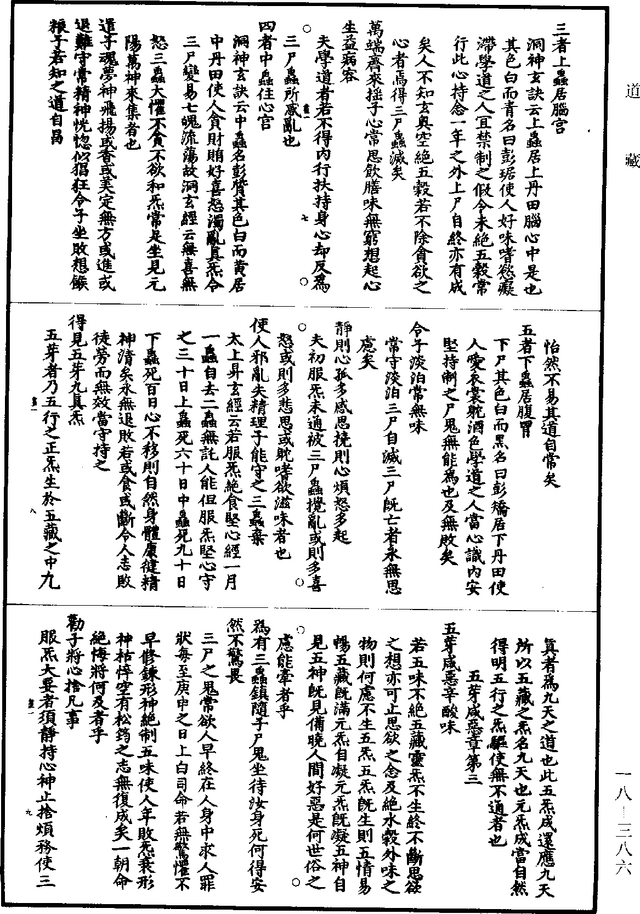 道藏
三者上蟲居腦宮
洞神玄訣云上蟲居上丹田腦心中是也
其色白而青名曰彭琚使人好味嗜慾癡
滯學道之人宜禁制之假令未絕五穀常
行此心持念一年之外上尸自終亦有成
矣人不知玄奧空絕五穀若不除貪欲之
心者焉得三蟲滅矣
萬端齊來搖子心常思飲膳味無窮想起心
生益病容
夫學道者若不得內行扶持身心却反為
三尸蟲所惑亂也
四者中蟲住心宮
洞神玄訣云中蟲名彭質其色白而黃居
中丹田使人貪財賄好喜怒濁亂真炁令
三尸變易七魄流蕩故洞玄經云無喜無
怒三蟲大懼不貪不欲和炁常足坐見元
陽萬神來集者也
遣子魂夢神飛揚或香或美定無方或進或
退難守常精神恍惚似猖狂令子坐敗想餱
糧子若知之道自昌
怡然不易其道自常矣
五者下蟲居腹胃
下尸其色白而黑名曰彭矯居下丹田使
人愛衣裳躭酒色學道之人當心識內安
堅持制之尸鬼無能為也及無敗矣
令子淡泊常無味
常守淡泊三尸自滅三尸既亡者永無思
慮矣
靜則心孤多感思撓則心煩怒多起
夫初服炁未通被三尸蟲攪亂或則多喜
怒或則多悲思或躭嗜欲滋味者也
使人邪亂失精理子能守之三蟲棄
太上昇玄經云若服炁絕食堅心經一月
一蟲自去二蟲無託人能但服炁堅心守
之三十日上蟲死六十日中蟲死九十日
下蟲死百日心不移則自然身體康健精
神清矣永無退敗若或食或斷令人志敗
徒勞而無效當守持之
得見五芽九真炁
五芽者乃五行之正炁生於五藏之中九
真者為九天之道也此五炁成還應九天
所以五藏之炁名九天也元炁成當自然
得明五行之炁驅使無不通者也
五芽咸惡章第三
五芽咸惡辛酸味
若五味不絕五藏靈炁不生終不斷思欲
之想亦可止思欲之念及絕水穀外味之
物則何處不生五炁五炁既生則五情易
暢五藏既滿元炁自凝元炁既凝五神自
見五神既見備曉人間好惡是何世俗之
慮能牽者乎
為有三蟲鎮隨子尸鬼坐待汝身死何得安
然不驚畏
三尸之鬼常欲人早終在人身中求人罪
狀每至庚申之日上白司命若無驚懼不
早修鍊形神絕制五味使人年敗炁衰形
神枯悴空有松筠之志無復成矣一朝命
絕悔將何及者乎
勸子將心捨凡事
服炁大要者須靜持心神止捨煩務使三
一八—三八六